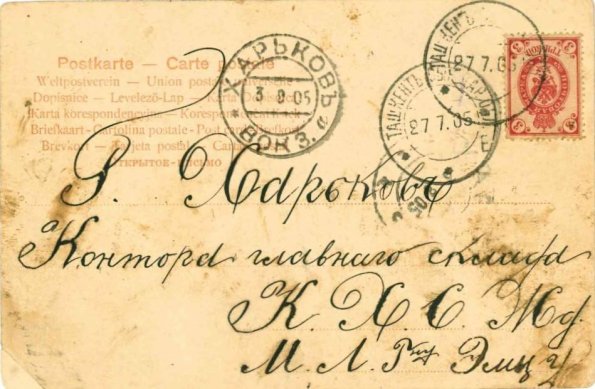 Postkarte — Carte postale
Weltpostverein — Union postale
Dopisnice — Levelező-Lap — Karta
Karta korespondencyjna — Korespondenční
Briefkaart — Cartolina postale — Post
Brevkort — Tarjeta postal — Cart
ОТКРЫТОЕ ПИСЬМО
ХАРЬКОВЪ
3 8 05
ВОКЗ.
ТАШКЕНТЪ
27 7.05
ТАШКЕНТЪ
27 7.05
3 3
Г. Харьковъ
Контора главнаго склада
К. Х. С. Ж. д.
М. Л. Гну Элицу